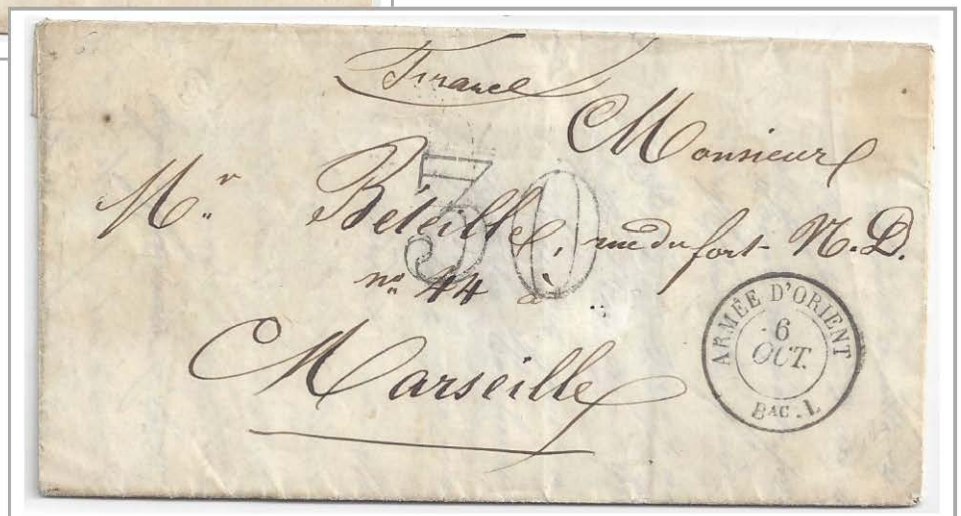 France
Monsieur
Mr. Béteille, rue du fort N. D.
no 44 à
Marseille
30
ARMÉE D'ORIENT
6
OCT.
BAU. L